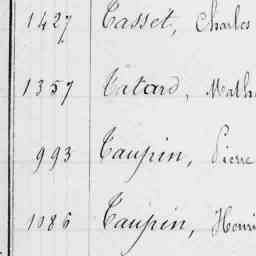 1427 Tasset, Charles
1357 Tatard, Math
993 Taupin, Pierre
1086 Taupin, Henri